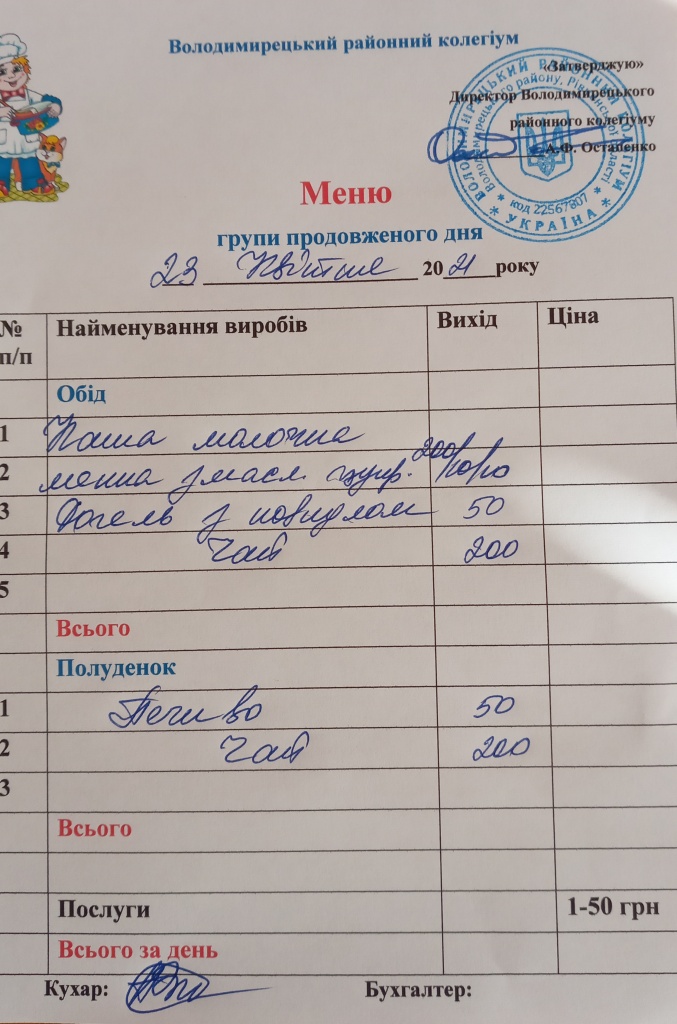 Володимирецький районний колегіум
«Затверджую»
Директор Володимирецького
районного колегіуму
А.Ф. Остапенко
ВОЛОДИМИРЕЦЬКИЙ РАЙОННИЙ КОЛЕГІУМ
Володимирецького району, Рівненської області
код 22567807
* УКРАЇНА *
Меню
групи продовженого дня
23 квітня 2021 року
№ п/п Найменування виробів Вихід Ціна
Обід
1 Каша молочна
2 манна з масл. цукр. 200/10/10
3 Рогель з повидлом 50
4 Чай 200
5
Всього
Полуденок
1 Печиво 50
2 Чай 200
3
Всього
Послуги 1-50 грн
Всього за день
Кухар: Бухгалтер: